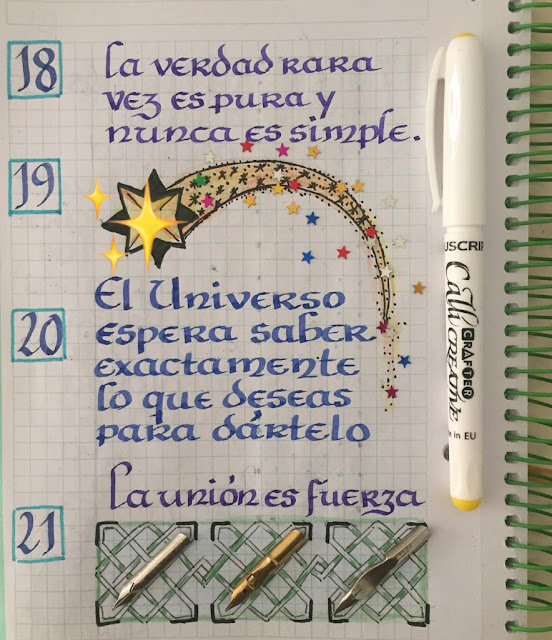 18
La verdad rara
vez es pura y
nunca es simple.
19
El Universo
20
espera saber
exactamente
lo que deseas
para dártelo
La unión es fuerza
21
CRAFTER
Calli CREATIVE
in EU